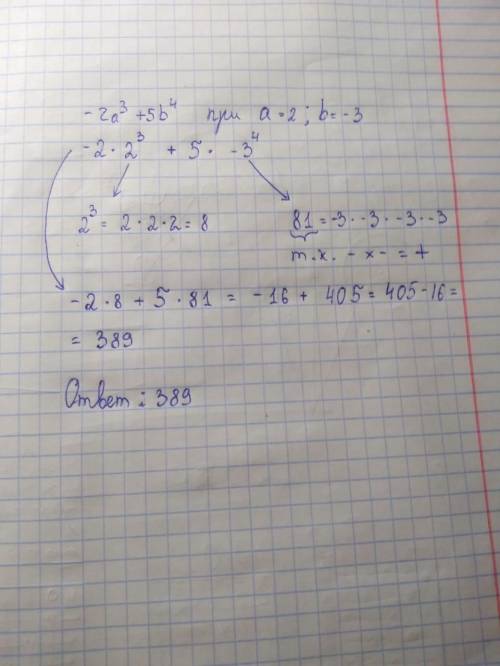 -2a³ +5b⁴ при a=2; b=-3
-2·2³ + 5·-3⁴
2³ = 2·2·2 = 8
81 = -3·-3·-3·-3
т.к. - x - = +
-2·8 + 5·81 = -16 + 405 = 405-16=
= 389
Ответ: 389